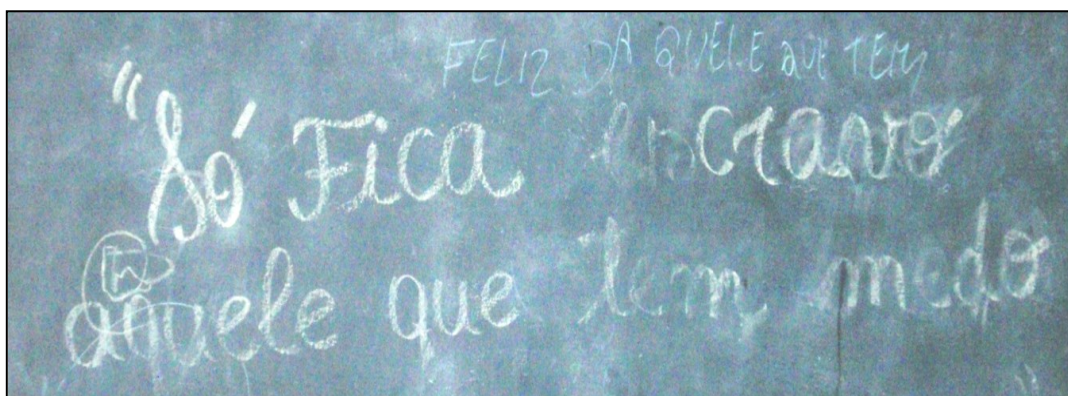 FELIZ DAQUELE QUE TEM
"Só Fica Escravo
aquele que tem medo
"